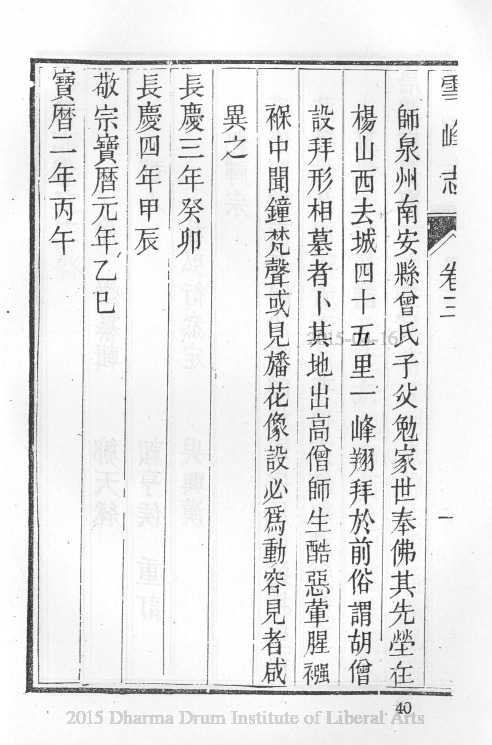 雪峰志 卷三 一
師泉州南安縣曾氏子父勉家世奉佛其先塋在
楊山西去城四十五里一峰翔拜於前俗謂胡僧
設拜形相墓者卜其地出高僧師生酷惡葷腥襁
褓中聞鐘梵聲或見旛花像設必爲動容見者咸
異之
長慶三年癸卯
長慶四年甲辰
敬宗寶曆元年乙巳
寶曆二年丙午
40
2015 Dharma Drum Institute of Liberal Arts